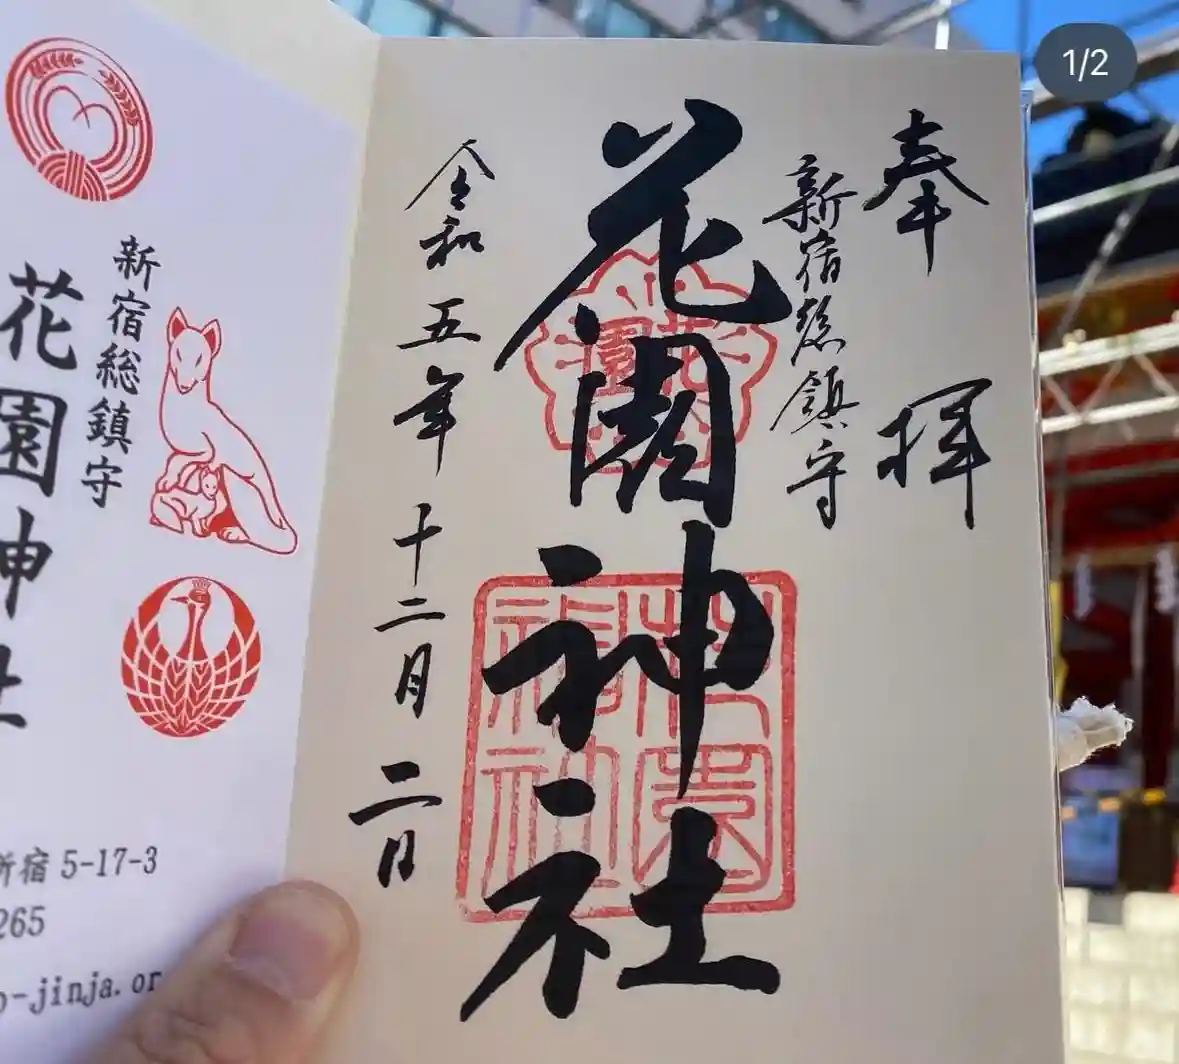 1/2
奉拝
新宿総鎮守
花園神社
花園
花園神社
令和五年十二月二日
新宿総鎮守
花園神社
新宿 5-17-3
265
o-jinja.or